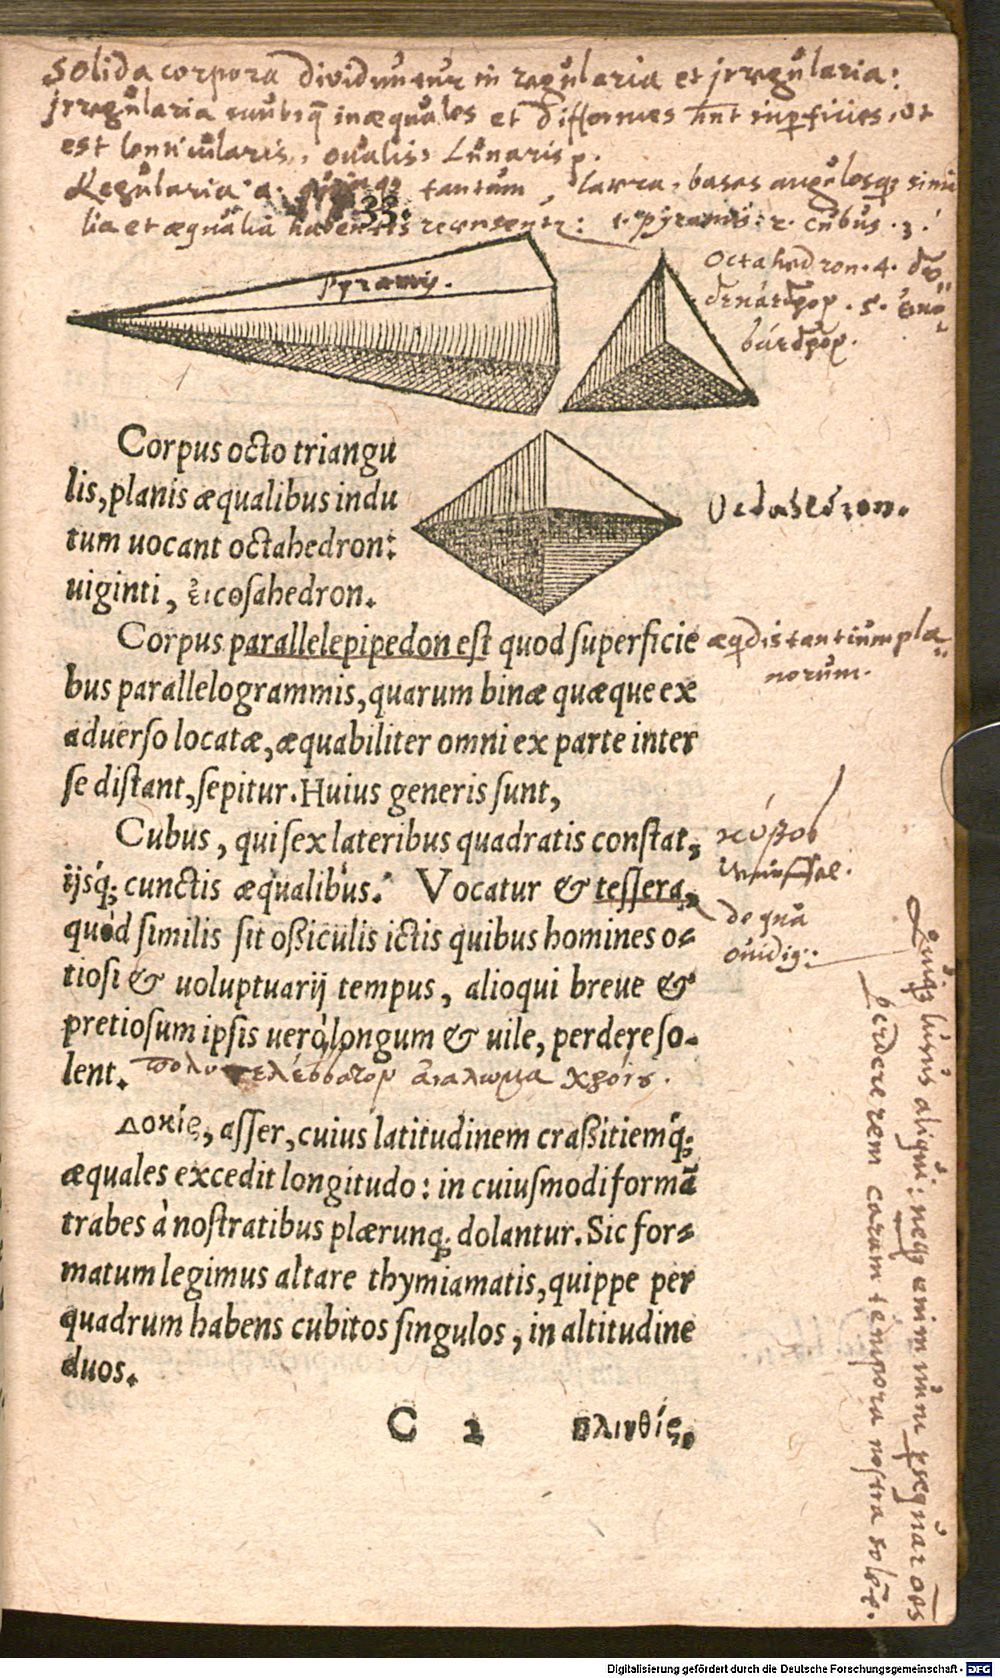 Solida corpora dividuntur in regularia et irregularia:
irregularia inæquales et difformes superficies, ut
est lenticularis, ovalis, Lunaris
Regularia tantum latera, bases angulosq; simi
lia et æqualia habentes recensentur: 1. pyramis: 2. cubus. 3.
33.
Octahedron. 4.
5.
Pyramis.
Corpus octo triangu
lis, planis æqualibus indu
tum uocant octahedron:
uiginti, εἰcοsahedron.
Octahedron.
Corpus parallelepipedon est quod superficie
bus parallelogrammis, quarum binæ quæque ex
aduerso locatæ, æquabiliter omni ex parte inter
se distant, sepitur. Huius generis sunt,
æqdistantium pla
norum.
Cubus, qui sex lateribus quadratis constat,
ijsq́; cunctis æqualibus. Vocatur & tessera,
quòd similis sit oßiculis ictis quibus homines o-
tiosi & uoluptuarij tempus, alioqui breue &
pretiosum ipsis uerò longum & uile, perdere so-
lent.
κύβος
de qua
ouidi9:
πολυτελέστατον ἀνάλωμα χρόνος.
Δοκίς, asser, cuius latitudinem craßitiemq́;
æquales excedit longitudo: in cuiusmodi formā
trabes à nostratibus plærunq; dolantur. Sic for-
matum legimus altare thymiamatis, quippe per
quadrum habens cubitos singulos, in altitudine
duos.
C 2 πλινθίς,
neq; enim nunc psequar oēs
perdere rem caram tempora nostra solēt.
Digitalisierung gefördert durch die Deutsche Forschungsgemeinschaft - DFG